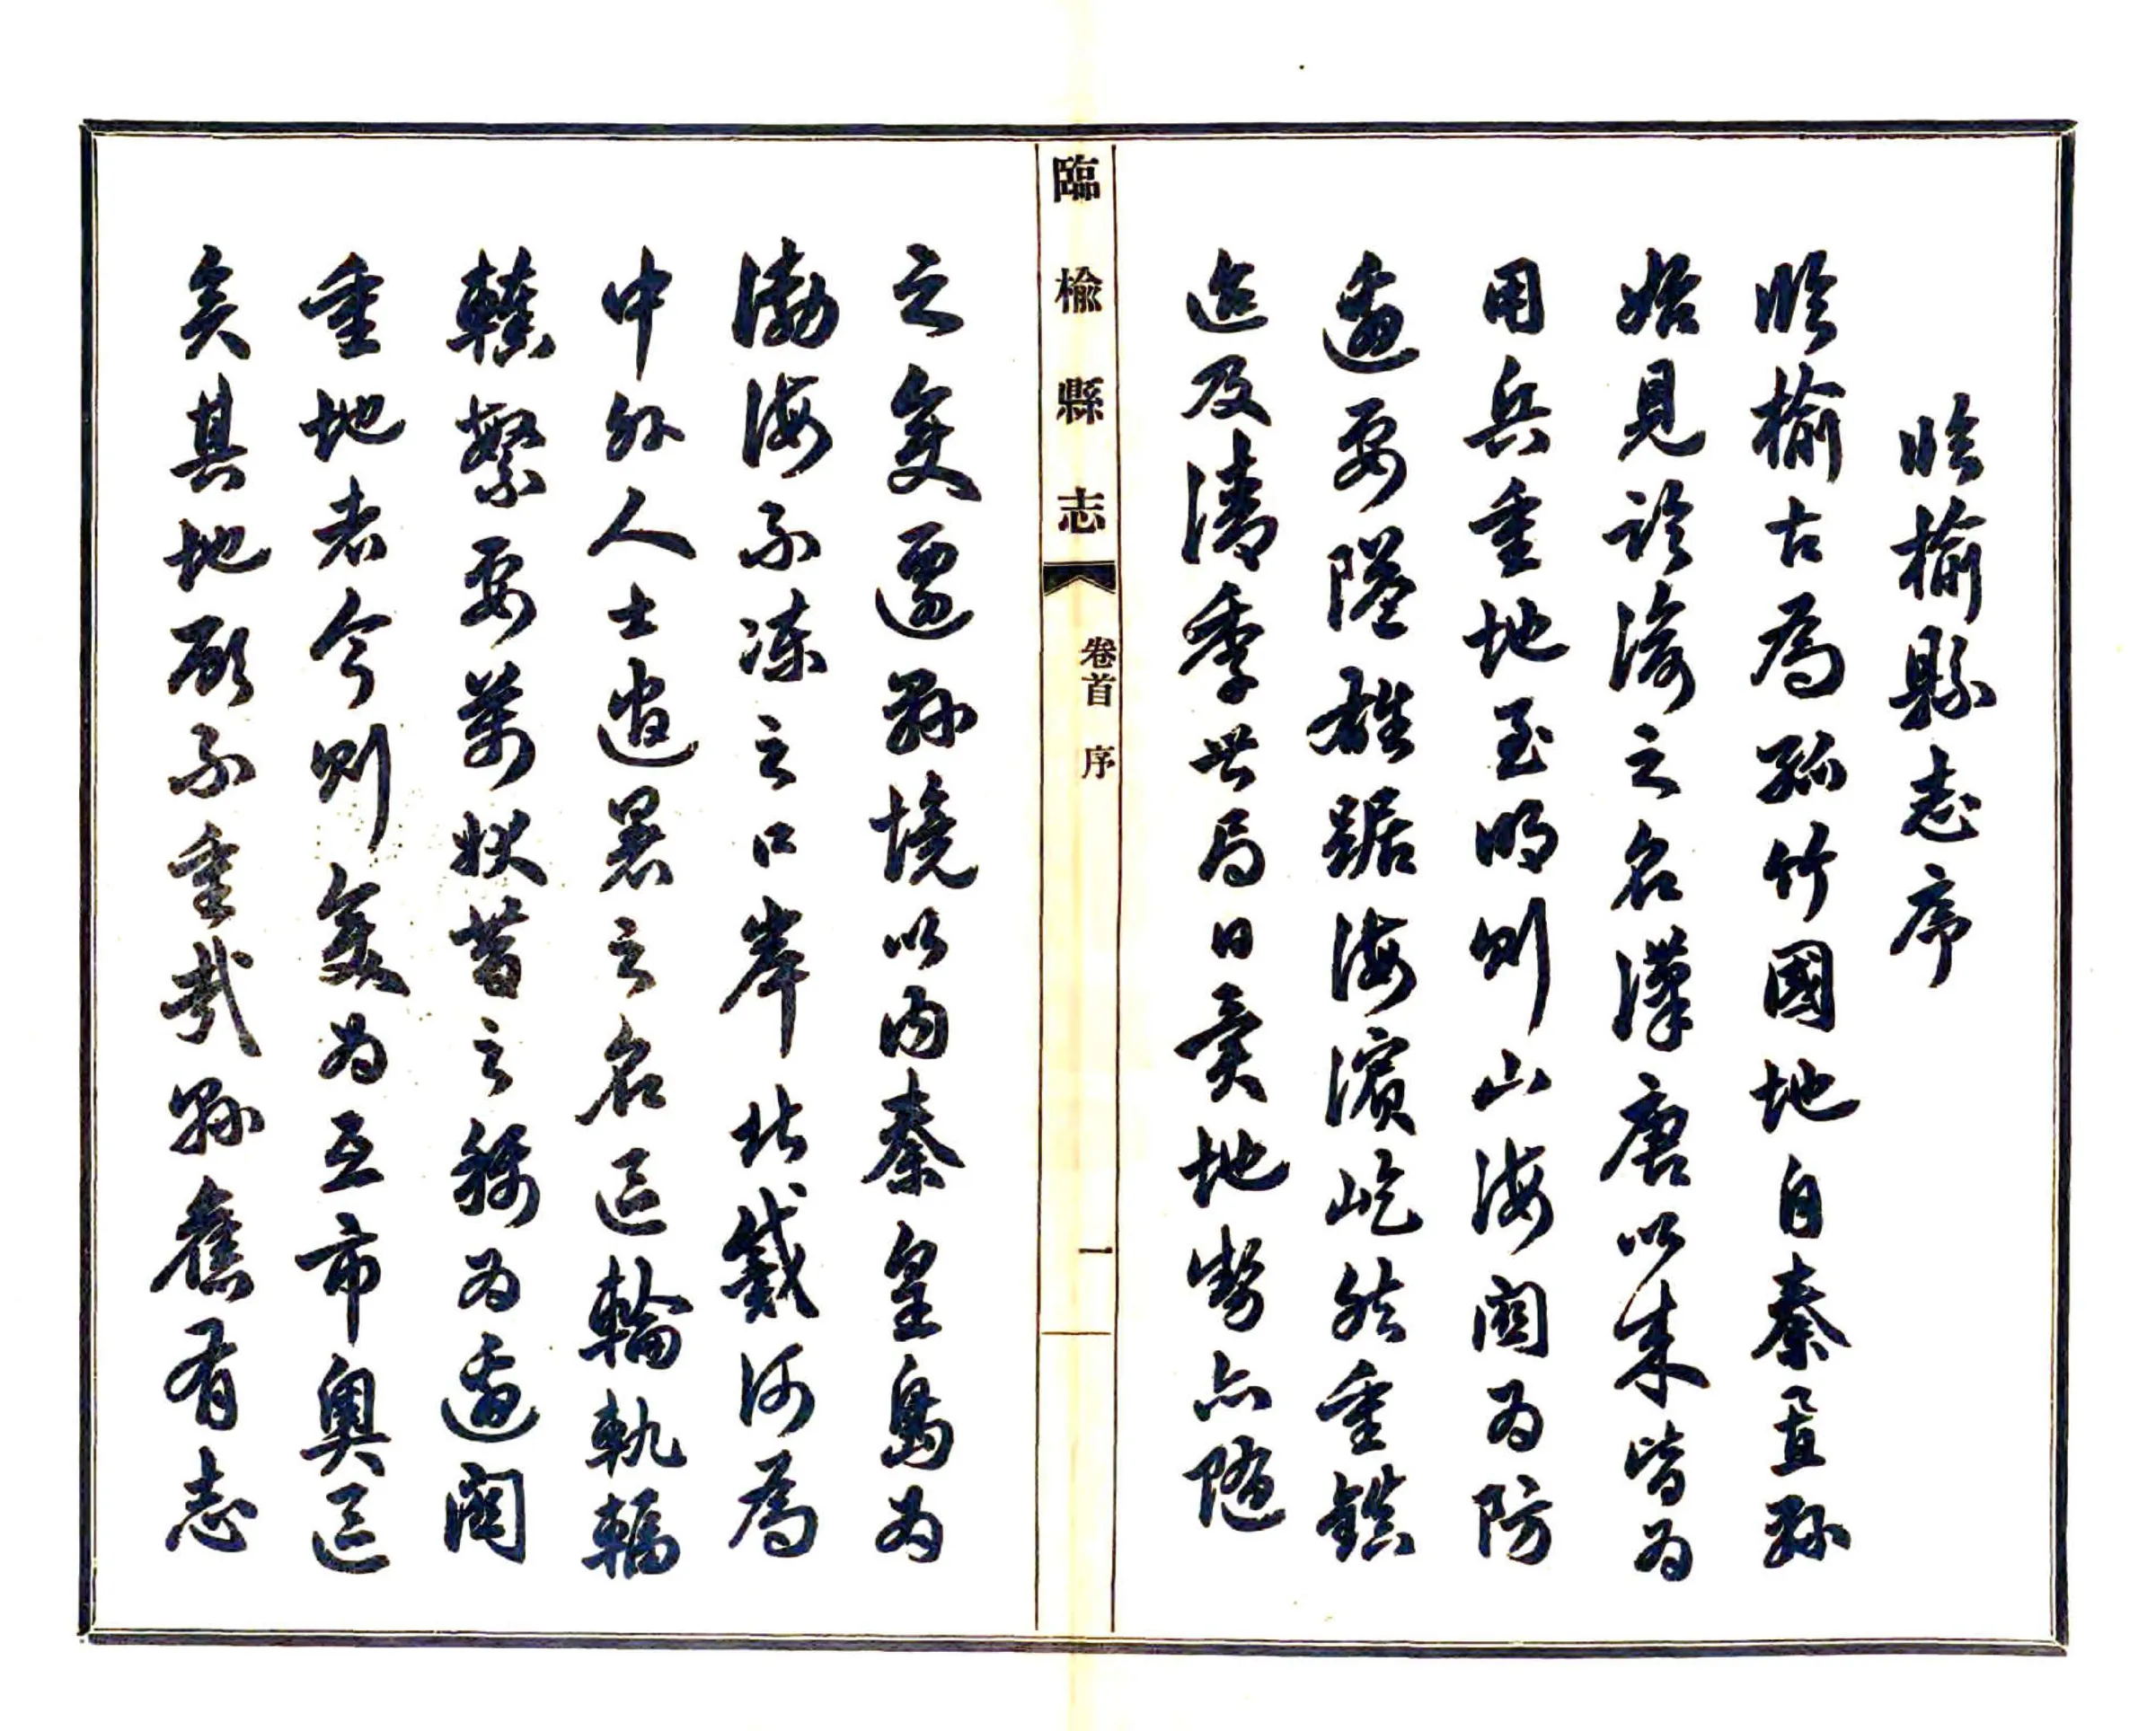 臨榆縣志序
臨榆古為孤竹國地自秦置縣
始見於渝之名漢唐以來皆為
用兵重地至明則山海關為防
邊要隘雄踞海濱屹然重鎮
迨及清季世局日變地勢亦隨
臨榆縣志
卷首 序
一
之矣遷縣境以內秦皇島為
渤海不凍之口岸北戴河為
中外人士避暑之名區輪軌輻
轃繁要萬狀昔之稱為邊關
重地者今則矣為互市奧區
矣其地顧不重哉縣舊有志